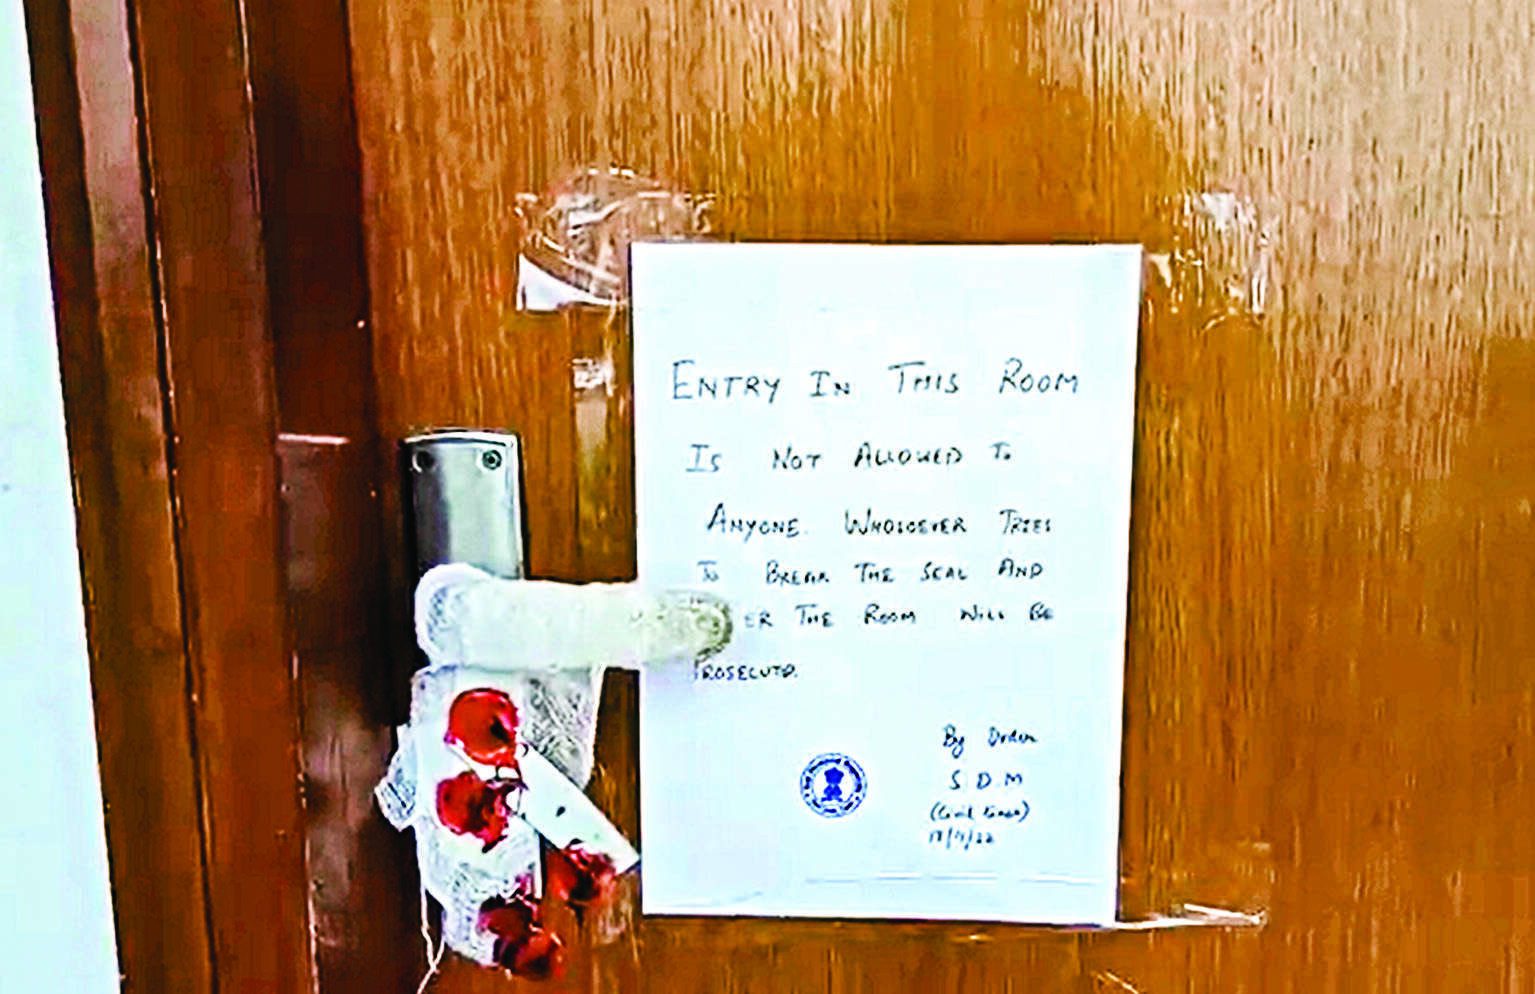 ENTRY IN THIS ROOM
IS NOT ALLOWED TO
ANYONE. WHOSOEVER TRIES
TO BREAK THE SEAL AND
ER THE ROOM WILL BE
PROSECUTD.
By Order
S. D. M
(Civil Lines)